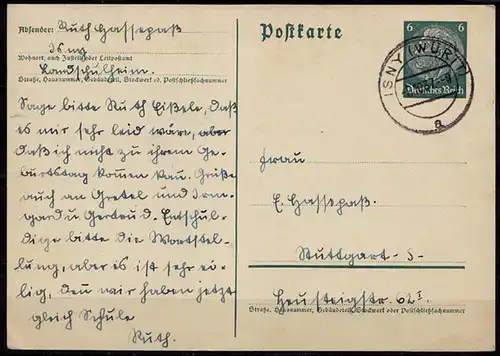 Absender: Ruth Gassepaß
Isny
Wohnort, auch Zustell- oder Leitpostamt
Landschulheim.
Straße, Hausnummer, Gebäudeteil, Stockwerk od. Postschließfachnummer
Sage bitte Ruth Eißele, daß
es mir sehr leid wäre, aber
daß ich nicht zu ihrem Ge-
burtstag kommen kan. Grüße
auch an Gretel und Irm-
gard u Gertrud. Entschul-
dige bitte die Wortstel-
lung, aber es ist sehr ei-
lig, den wir haben jetzt
gleich Schule
Ruth.
Postkarte
6 6
Deutsches Reich
ISNY (WÜRTT)
a
Frau
E. Gassepaß.
Stuttgart-S-
Heusteigstr. 62 I.
Straße, Hausnummer, Gebäudeteil, Stockwerk oder Postschließfachnummer